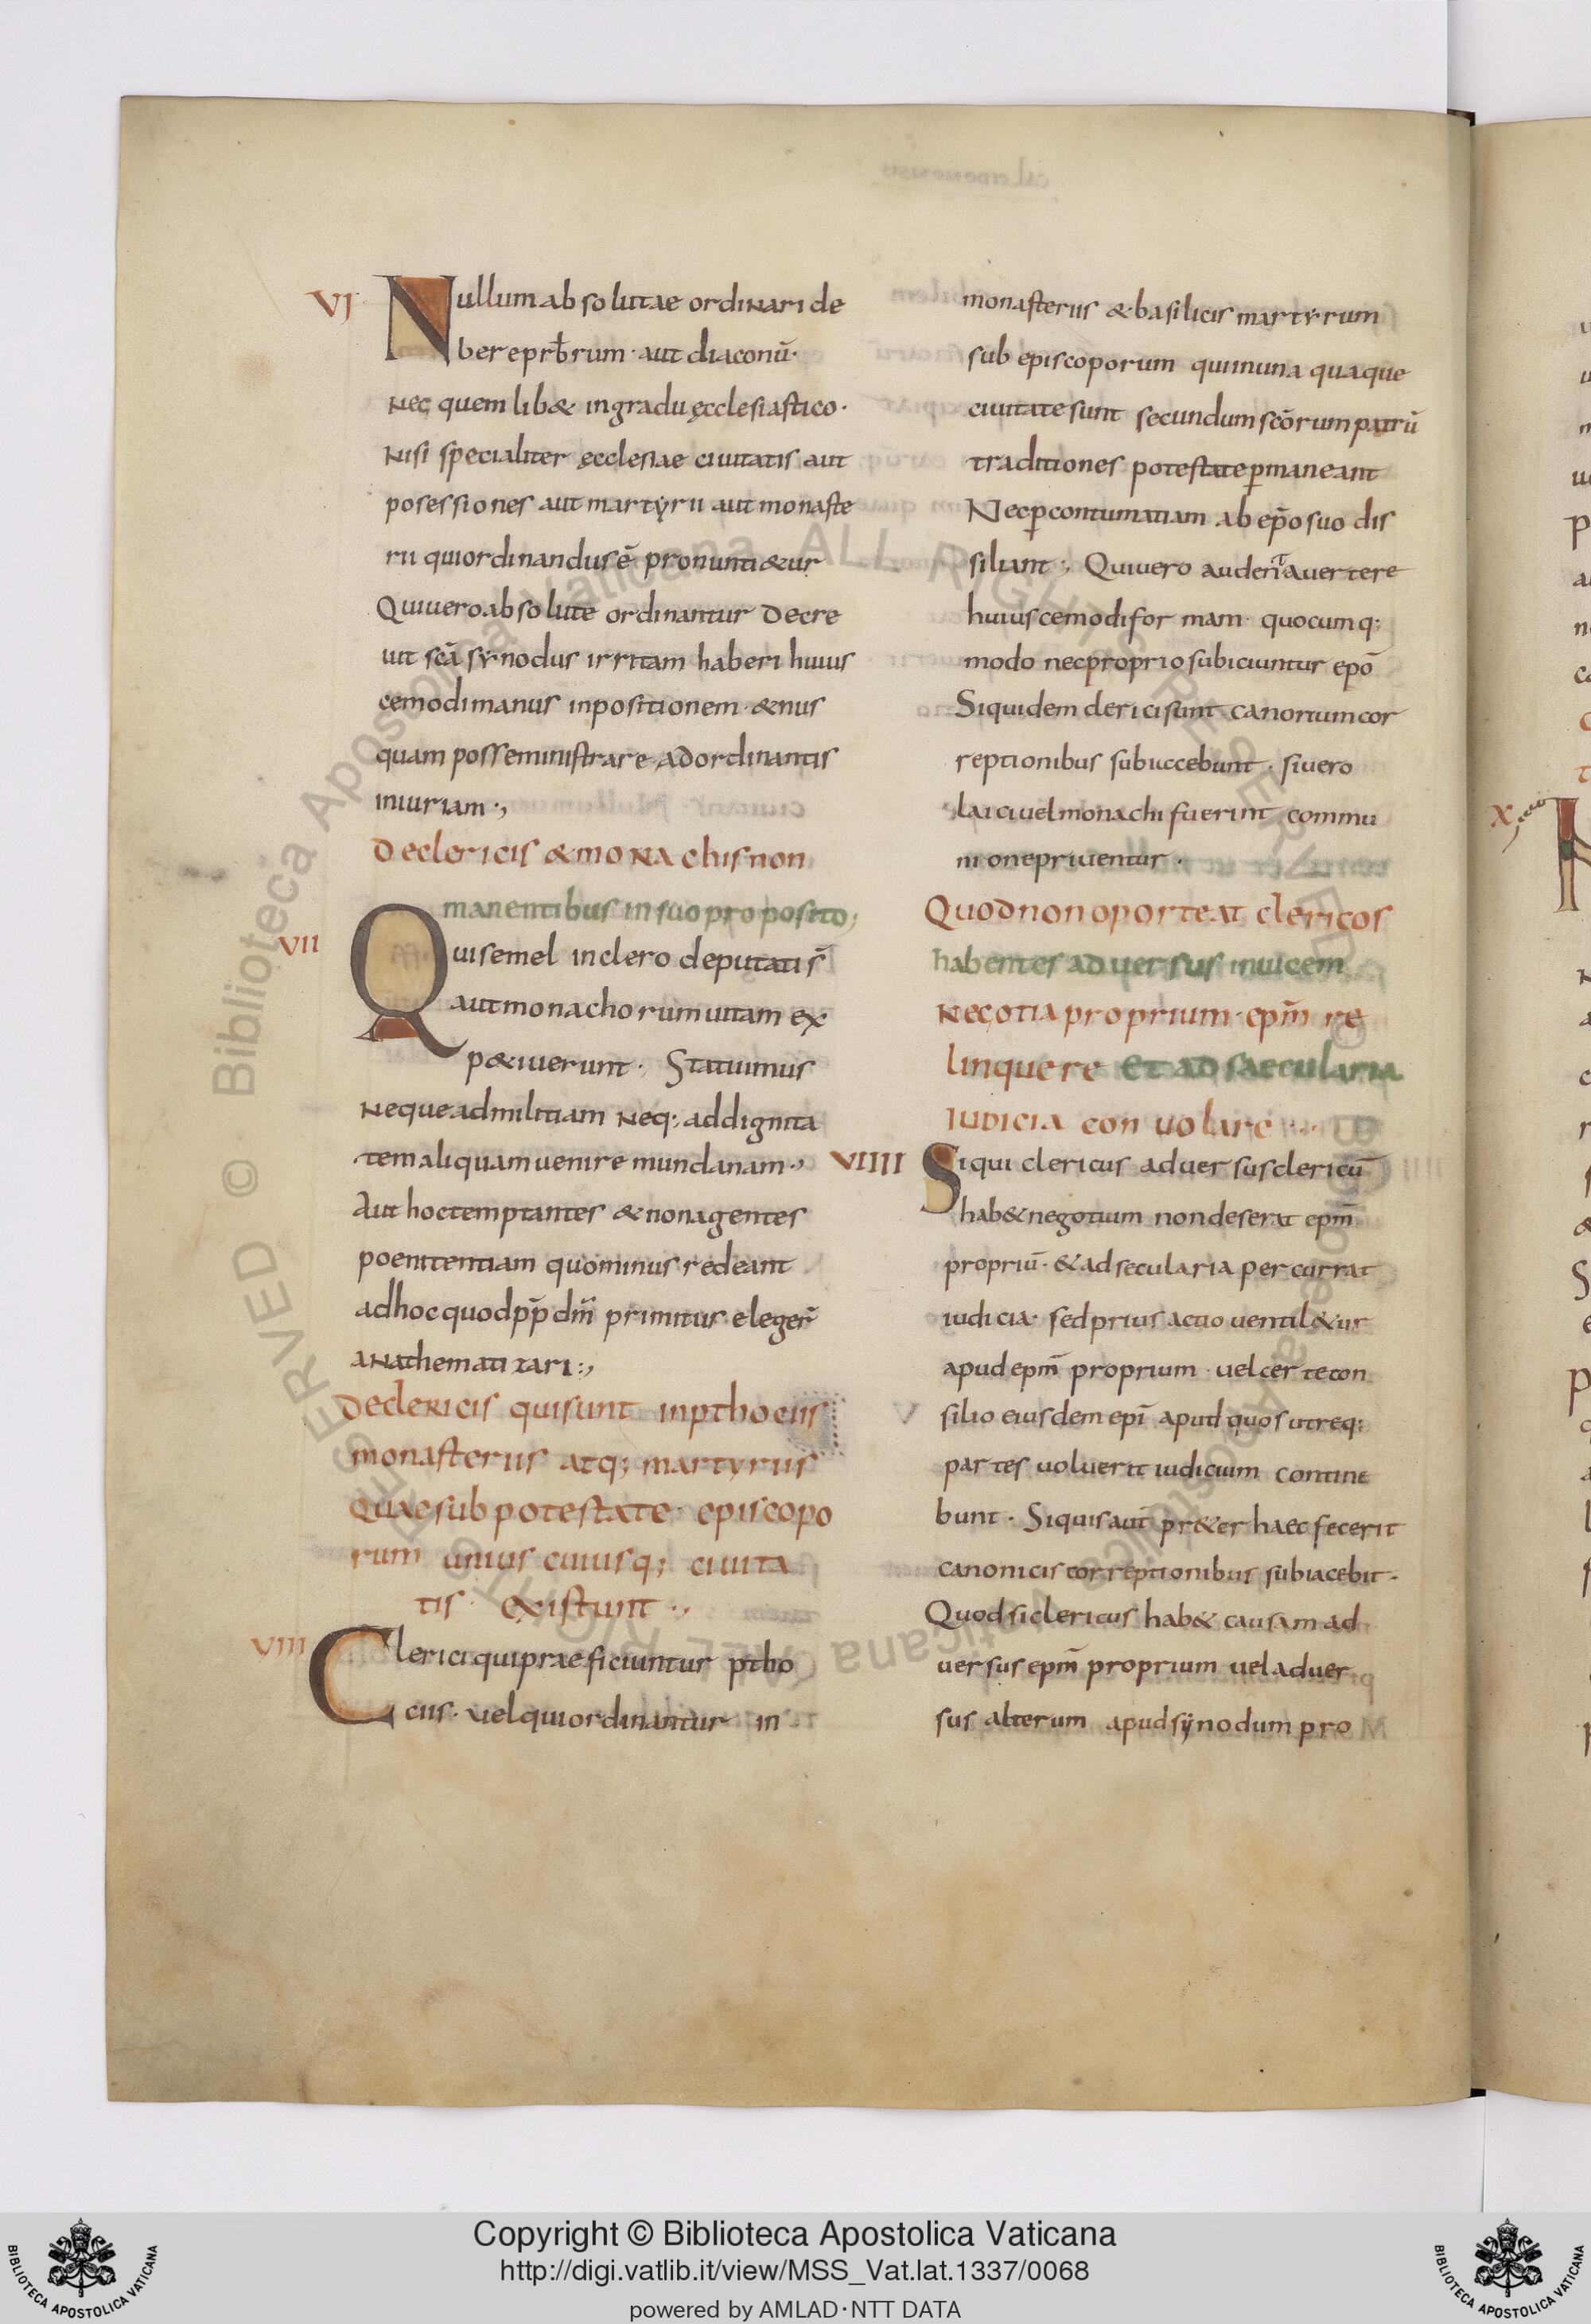 VI Nullum absolutae ordinari de
bere eprb̄rum · aut diaconū ·
nec quemlib& in gradu ęcclesiastico ·
nisi specialiter ęcclesiae ciuitatis aut
posessiones aut martyrii aut monaste
rii qui ordinandus ē pronunti&ur
Qui uero absolute ordinantur decre
uit scā synodus irritam haberi huius
cemodi manus inpositionem · & nus
quam posse ministrare ad ordinantis
iniuriam ·,
De clericis & monachis non
manentibus in suo proposito;
VII Qui semel in clero deputati s̄
aut monachorum uitam ex
p&iuerunt · Statuimus
neque ad militiam neq; ad dignita
tem aliquam uenire mundanam ·,
Aut hoc temptantes & non agentes
poenitentiam quominus redeant
ad hoc quod pp̄ dm̄ primitus eleger̄
anathematizari :,
De clericis qui sunt in pthociis
monasteriis atq; martyriis
quae sub potestate episcopo
rum unius cuiusq; ciuita
tis existunt ·,
VIII Clerici qui praeficiuntur ptho
ciis · uel qui ordinantur in
monasteriis & basilicis martyrum
sub episcoporum qui in unaquaque
ciuitate sunt secundum scōrum patrū
traditiones potestate p̱maneant
Nec p̱ contumatiam ab ep̄o suo dis
siliant ·, Qui uero audent auertere
huiuscemodi formam quocumq;
modo nec proprio subiciuntur epō
Siquidem clerici sunt canonum cor
reptionibus subiccebunt · si uero
laici uel monachi fuerint commu
nione priuentur ·
Quod non oporteat clericos
habentes aduersus inuicem
necotia proprium epm̄ re
linquere et ad saecularia
iudicia conuolare
VIIII Si qui clericus aduersus clericū
hab& negotium non deserat epm̄
propriū · & ad secularia percurrat
iudicia · sed prius actio uentil&ur
apud epm̄ proprium · uel certe con
silio eiusdem epī apud quos utreq;
partes uoluerit iudicium contine
bunt · Siquis aut̄ pr&er haec fecerit
canonicis correptionibus subiacebit ·
Quod si clericus hab& causam ad
uersus epm̄ proprium uel aduer
sus alterum apud synodum pro
X
Copyright © Biblioteca Apostolica Vaticana
http://digi.vatlib.it/view/MSS_Vat.lat.1337/0068
powered by AMLAD·NTT DATA
BIBLIOTECA APOSTOLICA VATICANA
BIBLIOTECA APOSTOLICA VATICANA